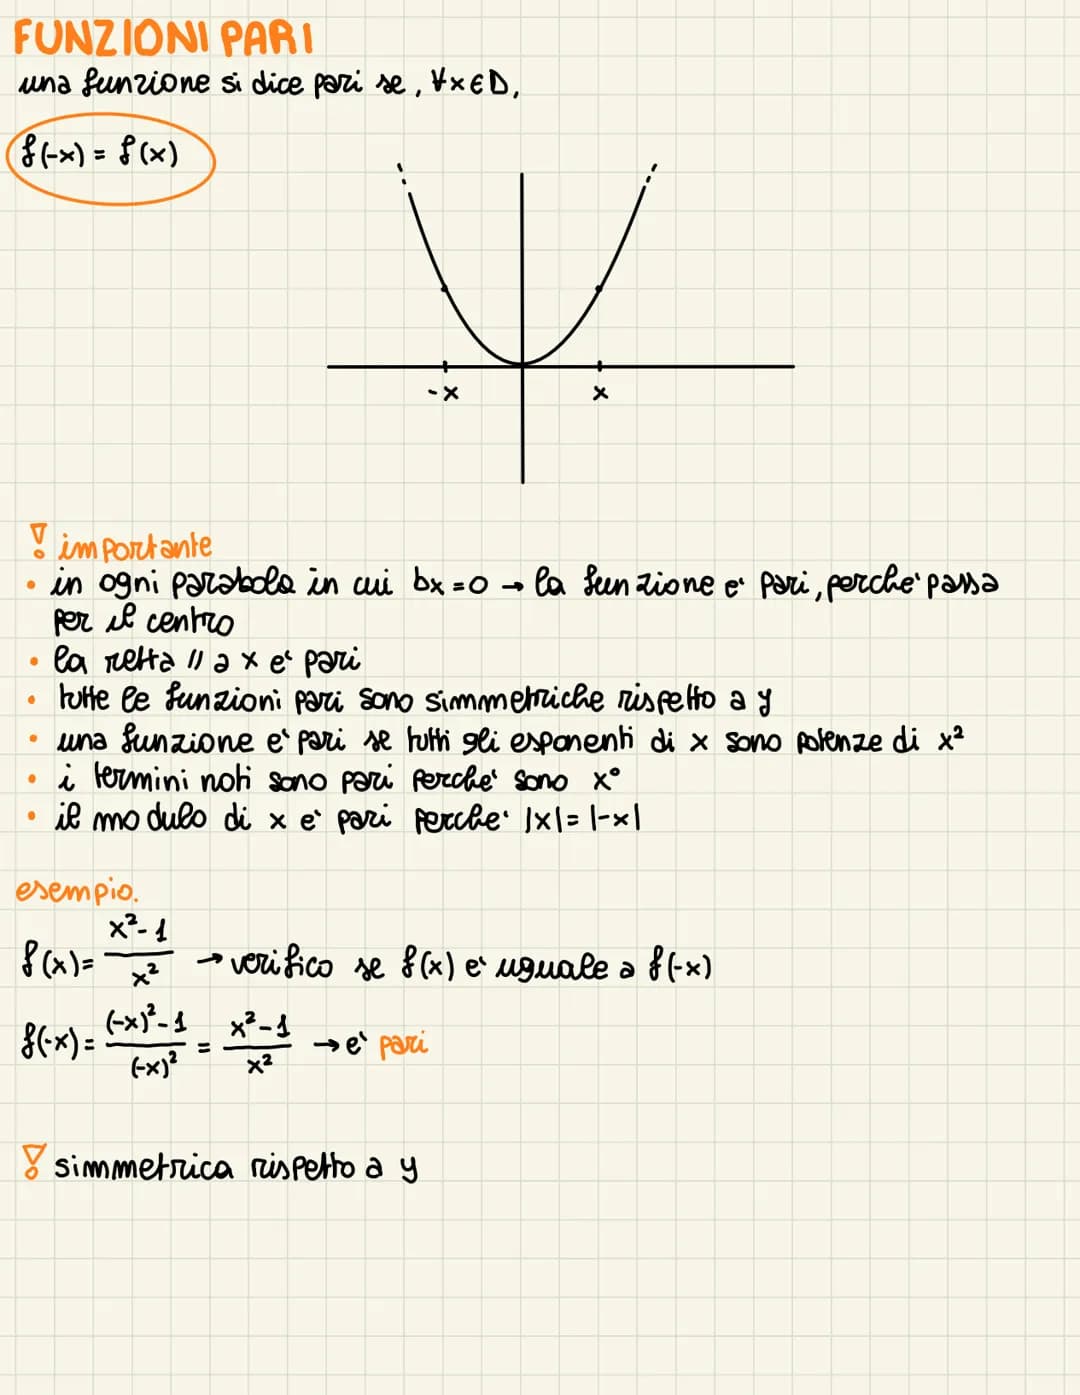 FUNZIONI PARI
una funzione si dice pari se, ∀x∈D,
f(-x) = f(x)
-x x
! importante
• in ogni parabola in cui bx=0 → la funzione e' pari, perche' passa
per il centro
• la retta // a x e' pari
• tutte le funzioni pari sono simmetriche rispetto a y
• una funzione e' pari se tutti gli esponenti di x sono potenze di x²
• i termini noti sono pari perche' sono x⁰
• il modulo di x e' pari perche' |x|=|-x|
esempio.
f(x)= x²-1 / x² → verifico se f(x) e' uguale a f(-x)
f(-x)= (-x)²-1 / (-x)² = x²-1 / x² → e' pari
! simmetrica rispetto a y